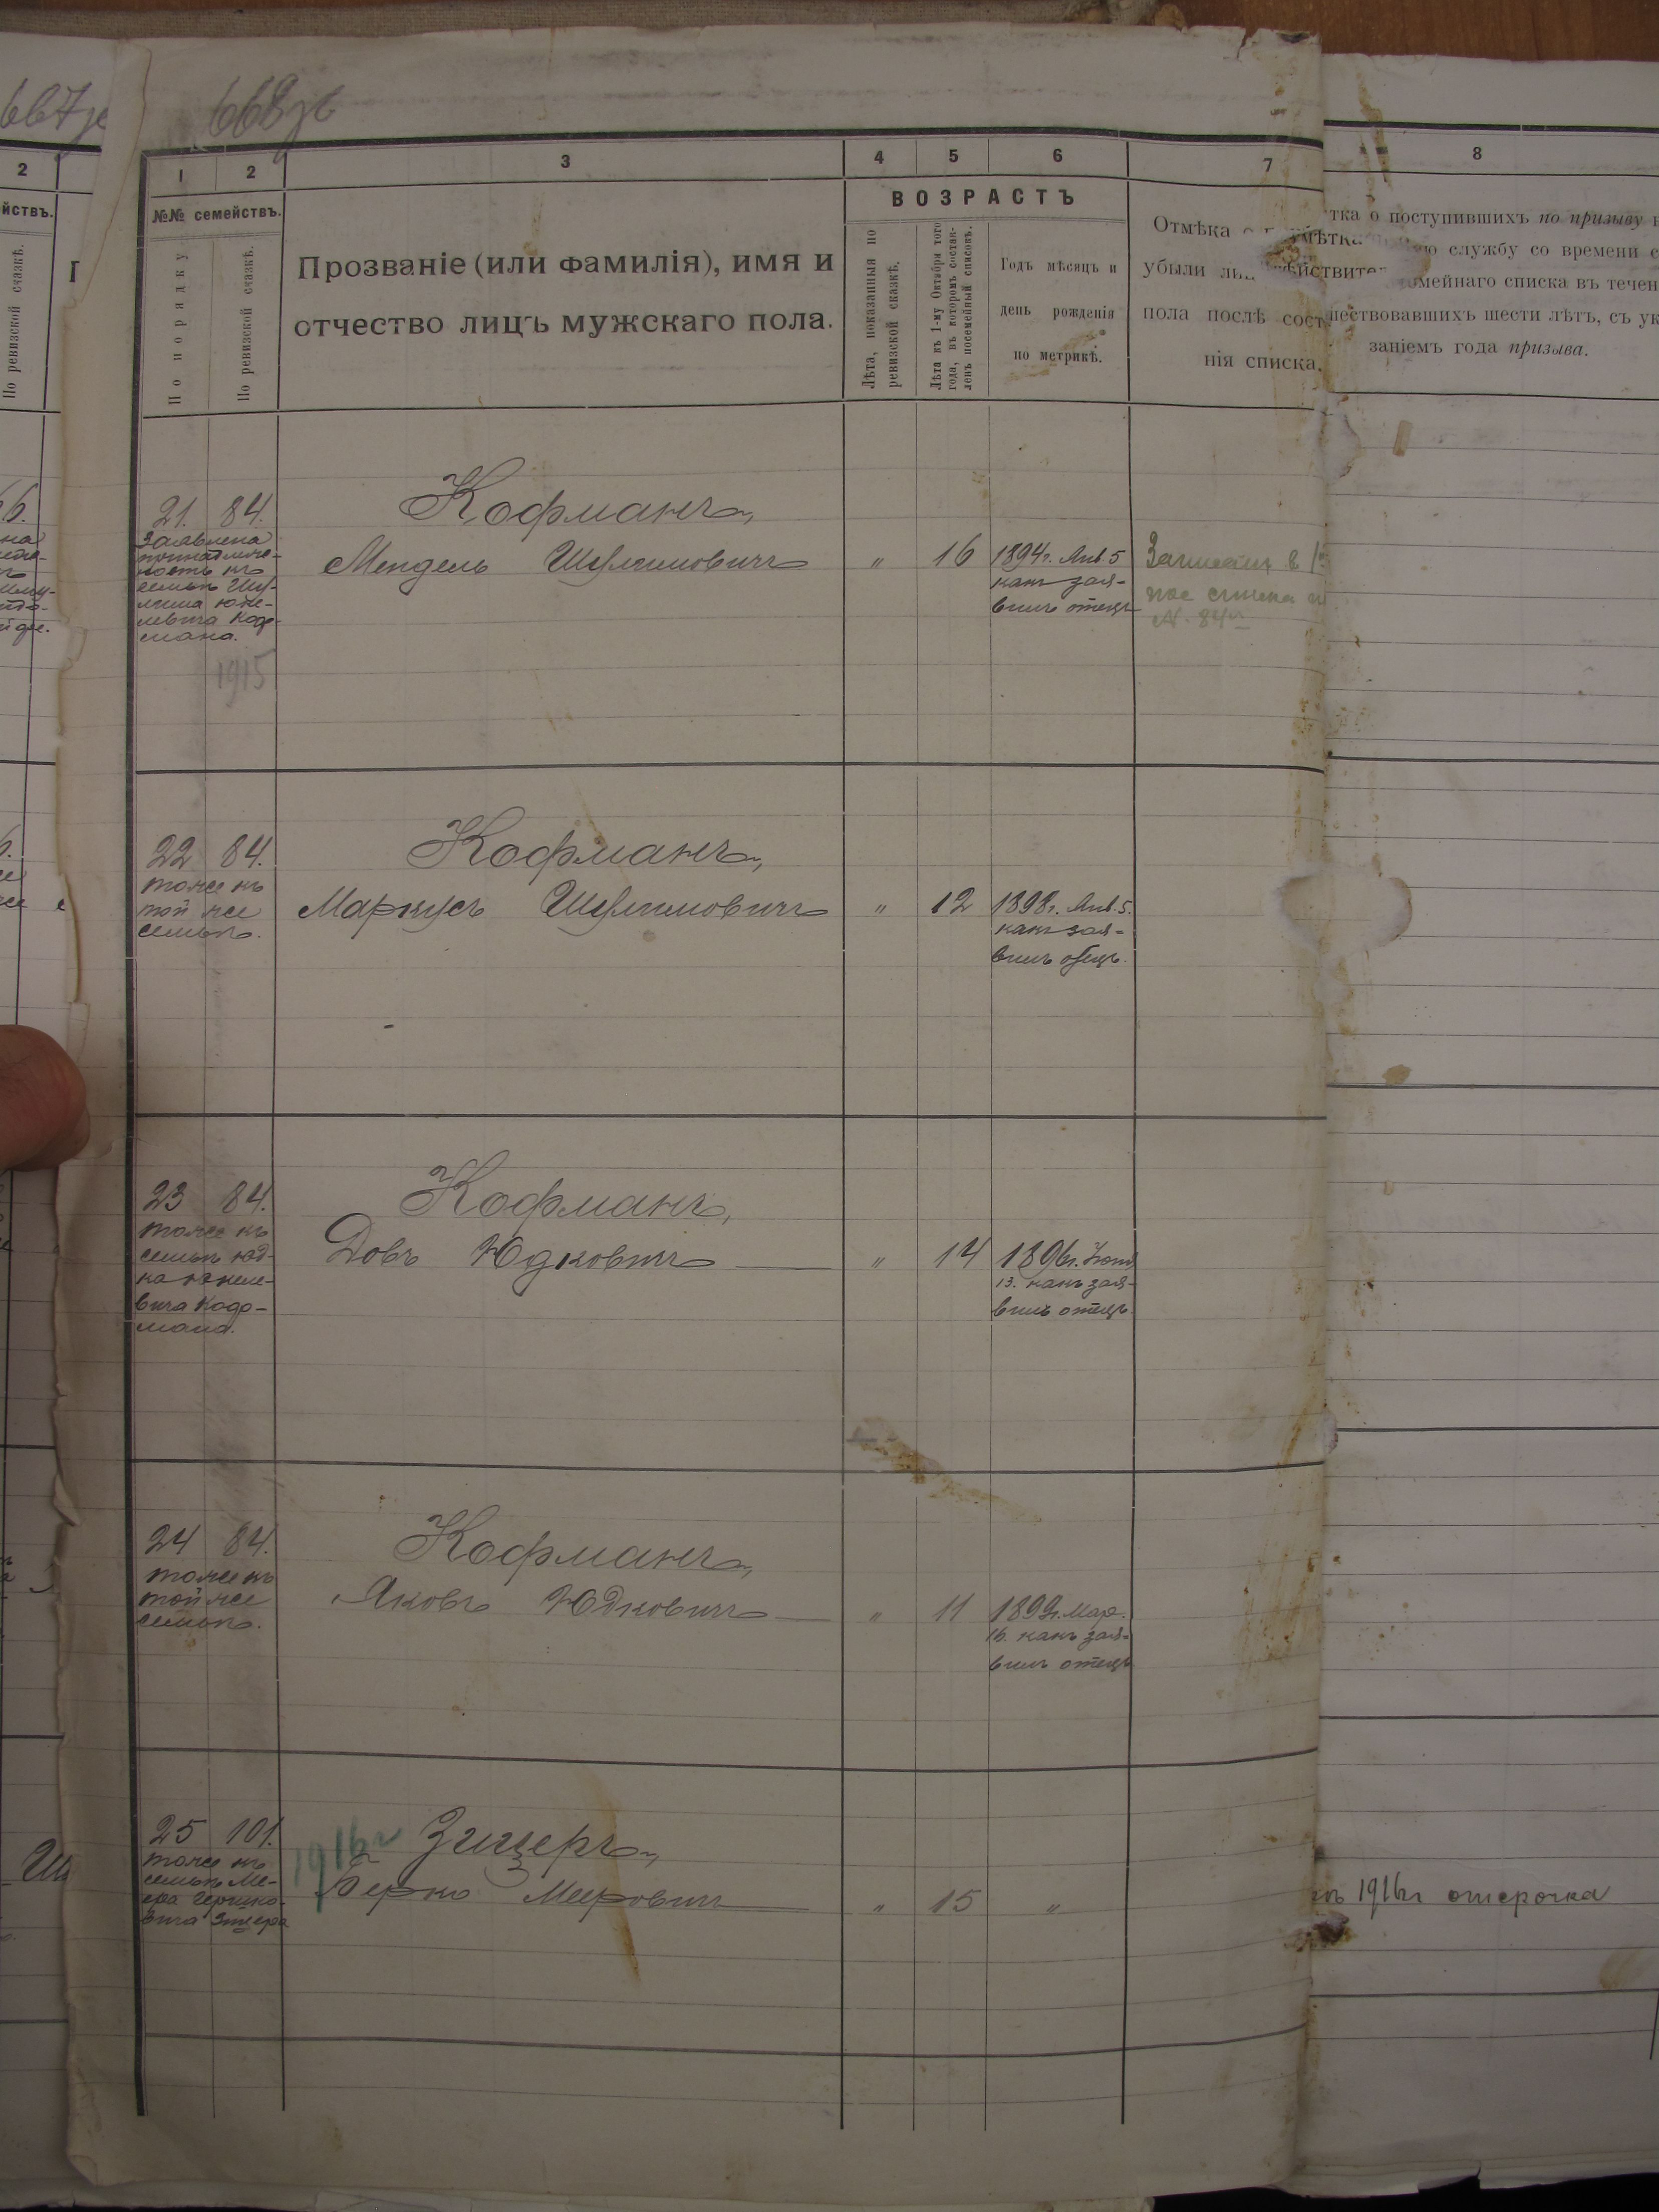 667
668
2
йствъ.
По ревизской сказкѣ.
1 2 3 4 5 6 7 8
№№ семействъ.
По порядку
По ревизской сказкѣ.
Прозваніе (или фамилія), имя и
отчество лицъ мужскаго пола.
ВОЗРАСТЪ
Лѣта, показанныя по
ревизской сказкѣ.
Лѣта къ 1-му Октября того
года, въ которомъ состав-
ленъ посемейный списокъ.
Годъ мѣсяцъ и
день рожденія
по метрикѣ.
Отмѣка о
убыли
пола послѣ сост
нія списка.
тка о поступившихъ по призыву
ю службу со времени с
мейнаго списка въ течен
шествовавшихъ шести лѣтъ, съ ук
заніемъ года призыва.
21. 84.
Заявлена
принадлеж-
ность къ
семьѣ Шу-
лима Юке-
левича Коф-
мана.
1915
Кофманъ,
Мендель Шулимовичъ " 16 1894г. Янв. 5
какъ зая-
вилъ отецъ
Записанъ в 1
пос списка
№ 84
22 84.
тоже къ
той же
семьѣ.
Кофманъ,
Маркусъ Шулимовичъ " 12 1898г. Янв. 5.
какъ зая-
вилъ отецъ.
23 84.
тоже къ
семьѣ Юд-
ка Юкеле-
вича Коф-
мана.
Кофманъ,
Довъ Юдковичъ " 14 1896г. Іюня
13. какъ зая-
вилъ отецъ.
24 84.
тоже къ
той же
семьѣ.
Кофманъ,
Яковъ Юдковичъ " 11 1899г. Мар.
16. какъ зая-
вилъ отецъ
25 101.
тоже къ
семьѣ Ме-
ера Гершко-
вича Зицера
1916г
Зицеръ,
Берко Мееровичъ " 15 "
1916г отсрочка